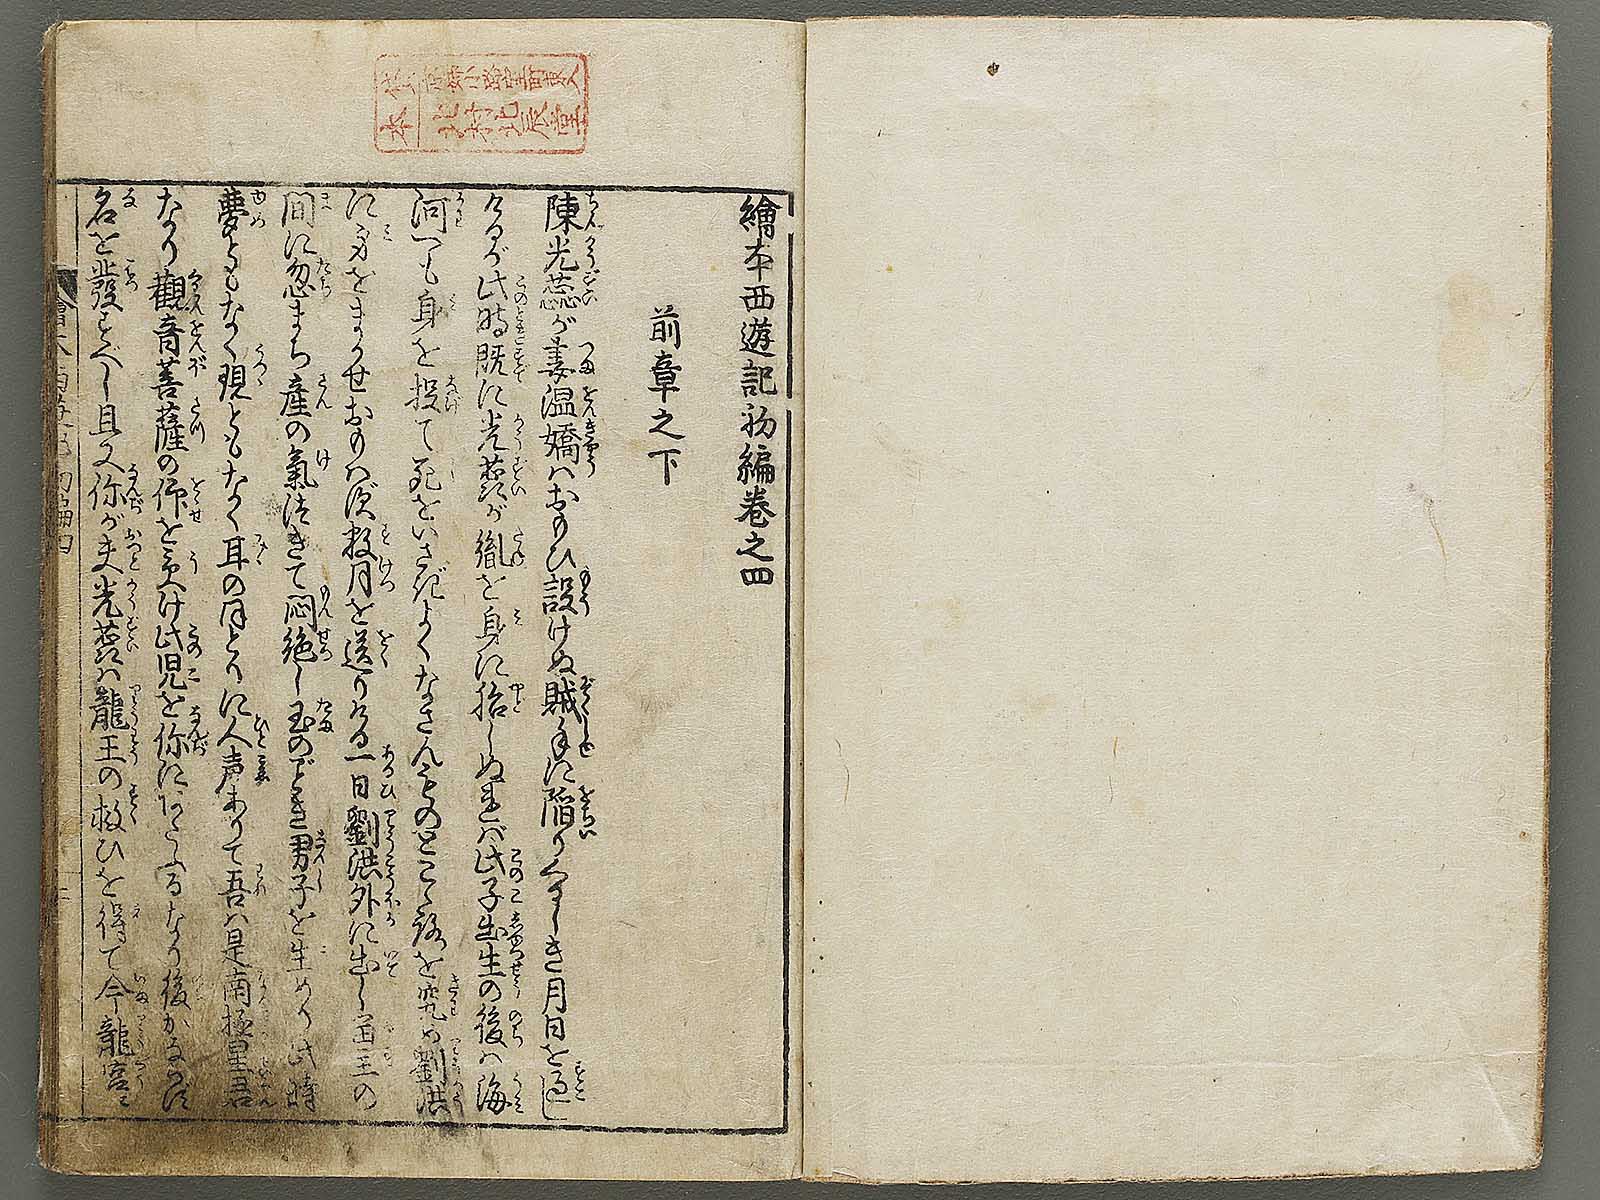 繪本西遊記初編巻之四
前章之下
陳光蕊が妻温嬌ハおもひ設けぬ賊手に陥りくるしき月日を過し
けるが此時既に光蕊が胤を身に胎しぬれバ此子出生の後ハ海
河へも身を投て死をいさぎよくなさんものとこゝろを究め劉洪
に身をまかせおもハず数月を送りける一日劉洪外に出し留主の
間に忽まち産の氣つきて悶絶し玉のごとき男子を生めり此時
夢ともなく現ともなく耳のほとりに人声ありて吾ハ是南極星君
なり觀音菩薩の仰を受け此児を你にあたふるなり後かならず
名を發すべし且又你が夫光蕊ハ龍王の救ひを得て今龍宮に